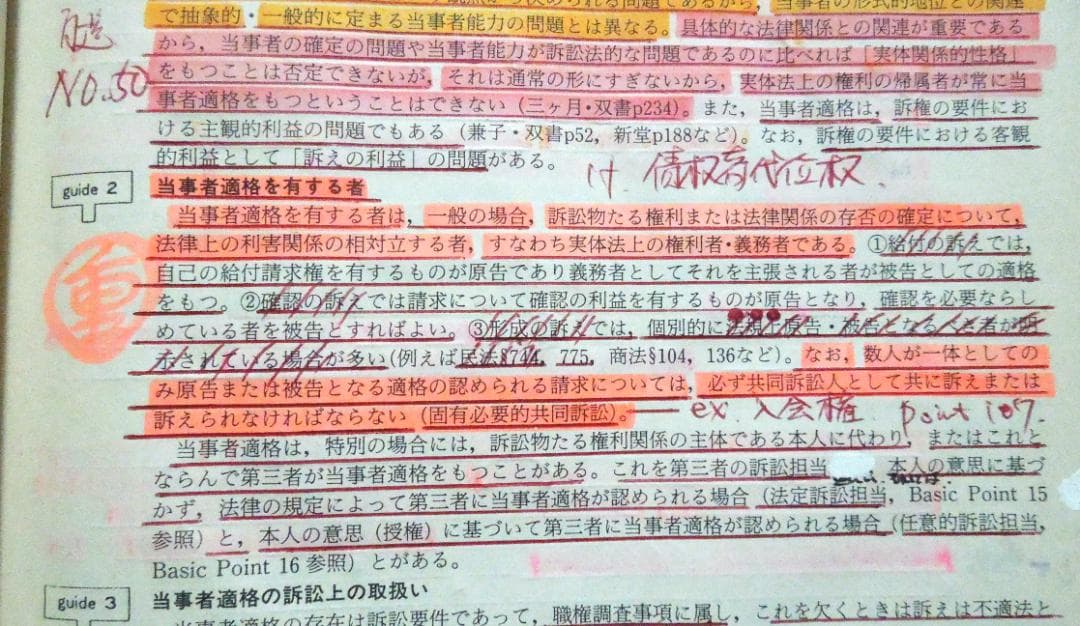 で抽象的・一般的に定まる当事者能力の問題とは異なる。具体的な法律関係との関連が重要である
から，当事者の確定の問題や当事者能力が訴訟法的な問題であるのに比べれば「実体関係的性格」
NO.50
をもつことは否定できないが，それは通常の形にすぎないから，実体法上の権利の帰属者が常に当
事者適格をもつということはできない（三ヶ月・双書p234）。また，当事者適格は，訴権の要件にお
ける主観的利益の問題でもある（兼子・双書p52，新堂p188など）。なお，訴権の要件における客観
的利益として「訴えの利益」の問題がある。
債权者代位权
guide 2
当事者適格を有する者
当事者適格を有する者は，一般の場合，訴訟物たる権利または法律関係の存否の確定について，
法律上の利害関係の相対立する者，すなわち実体法上の権利者・義務者である。①給付の訴えでは，
重
自己の給付請求権を有するものが原告であり義務者としてそれを主張される者が被告としての適格
をもつ。②確認の訴えでは請求について確認の利益を有するものが原告となり，確認を必要ならし
めている者を被告とすればよい。③形成の訴えでは，個別的に法規上原告・被告となるべき者が明
示されている場合が多い(例えば民法§744，775，商法§104，136など)。なお，数人が一体としての
み原告または被告となる適格の認められる請求については，必ず共同訴訟人として共に訴えまたは
訴えられなければならない（固有必要的共同訴訟）。
ex 入会権 point 107.
当事者適格は，特別の場合には，訴訟物たる権利関係の主体である本人に代わり，またはこれと
ならんで第三者が当事者適格をもつことがある。これを第三者の訴訟担当 本人の意思に基づ
かず，法律の規定によって第三者に当事者適格が認められる場合（法定訴訟担当，Basic Point 15
参照）と，本人の意思（授権）に基づいて第三者に当事者適格が認められる場合（任意的訴訟担当，
Basic Point 16 参照）とがある。
guide 3
当事者適格の訴訟上の取扱い
当事者適格の存在は訴訟要件であって，職権調査事項に属し，これを欠くときは訴えは不適法と